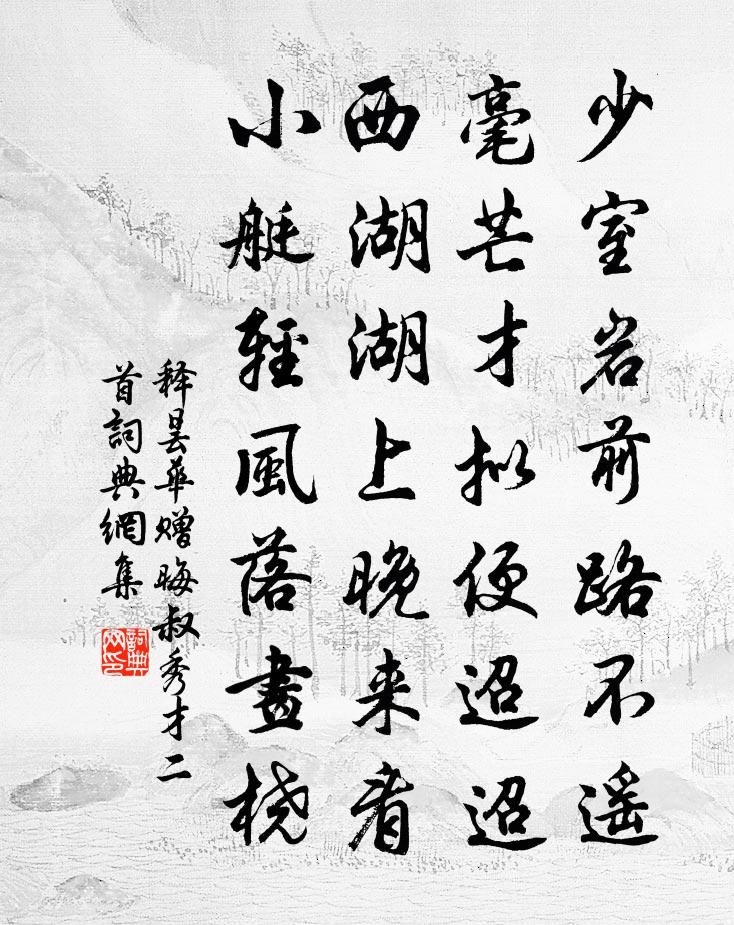 少室岩前路不遥
毫芒才拟便迢迢
西湖湖上晚来看
小艇輕風落畫桡
释昙华赠晦叔秀才二
首詞典網集
詞典網印